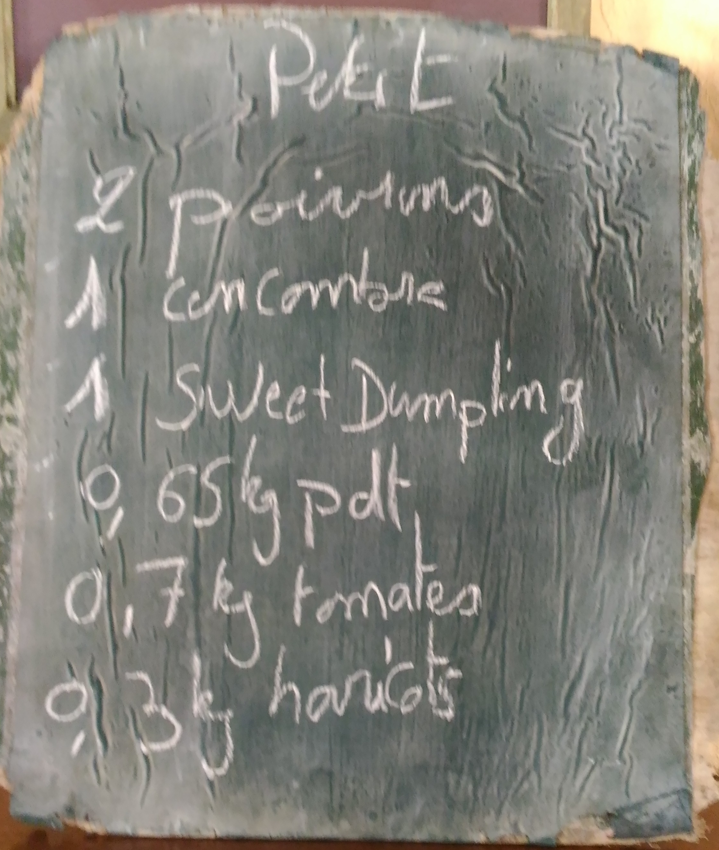 Petit
2 poivrons
1 concombre
1 Sweet Dumpling
0,65kg pdt
0,7 kg tomates
0,3kg haricots